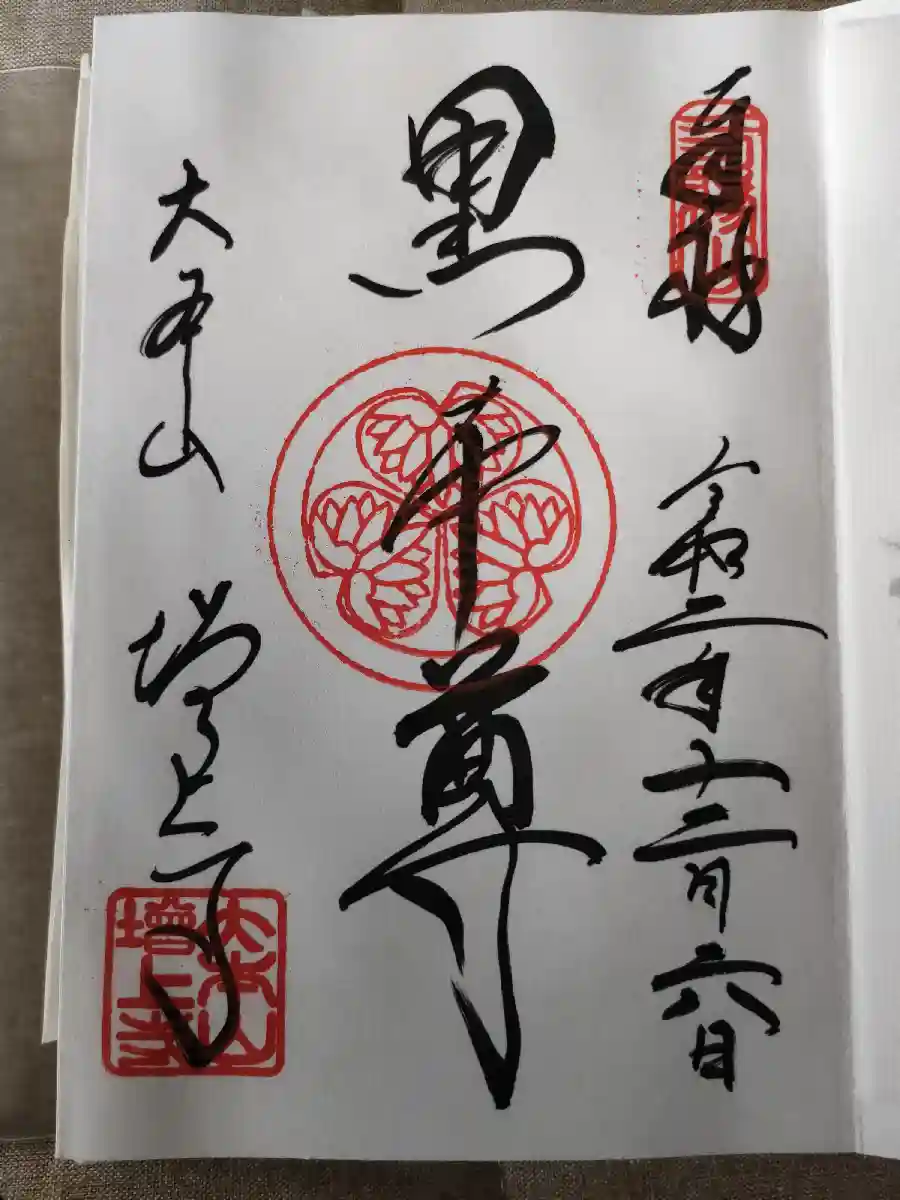 奉拝
令和二年十二月六日
黒本尊
大本山 増上寺
大本山
增上寺